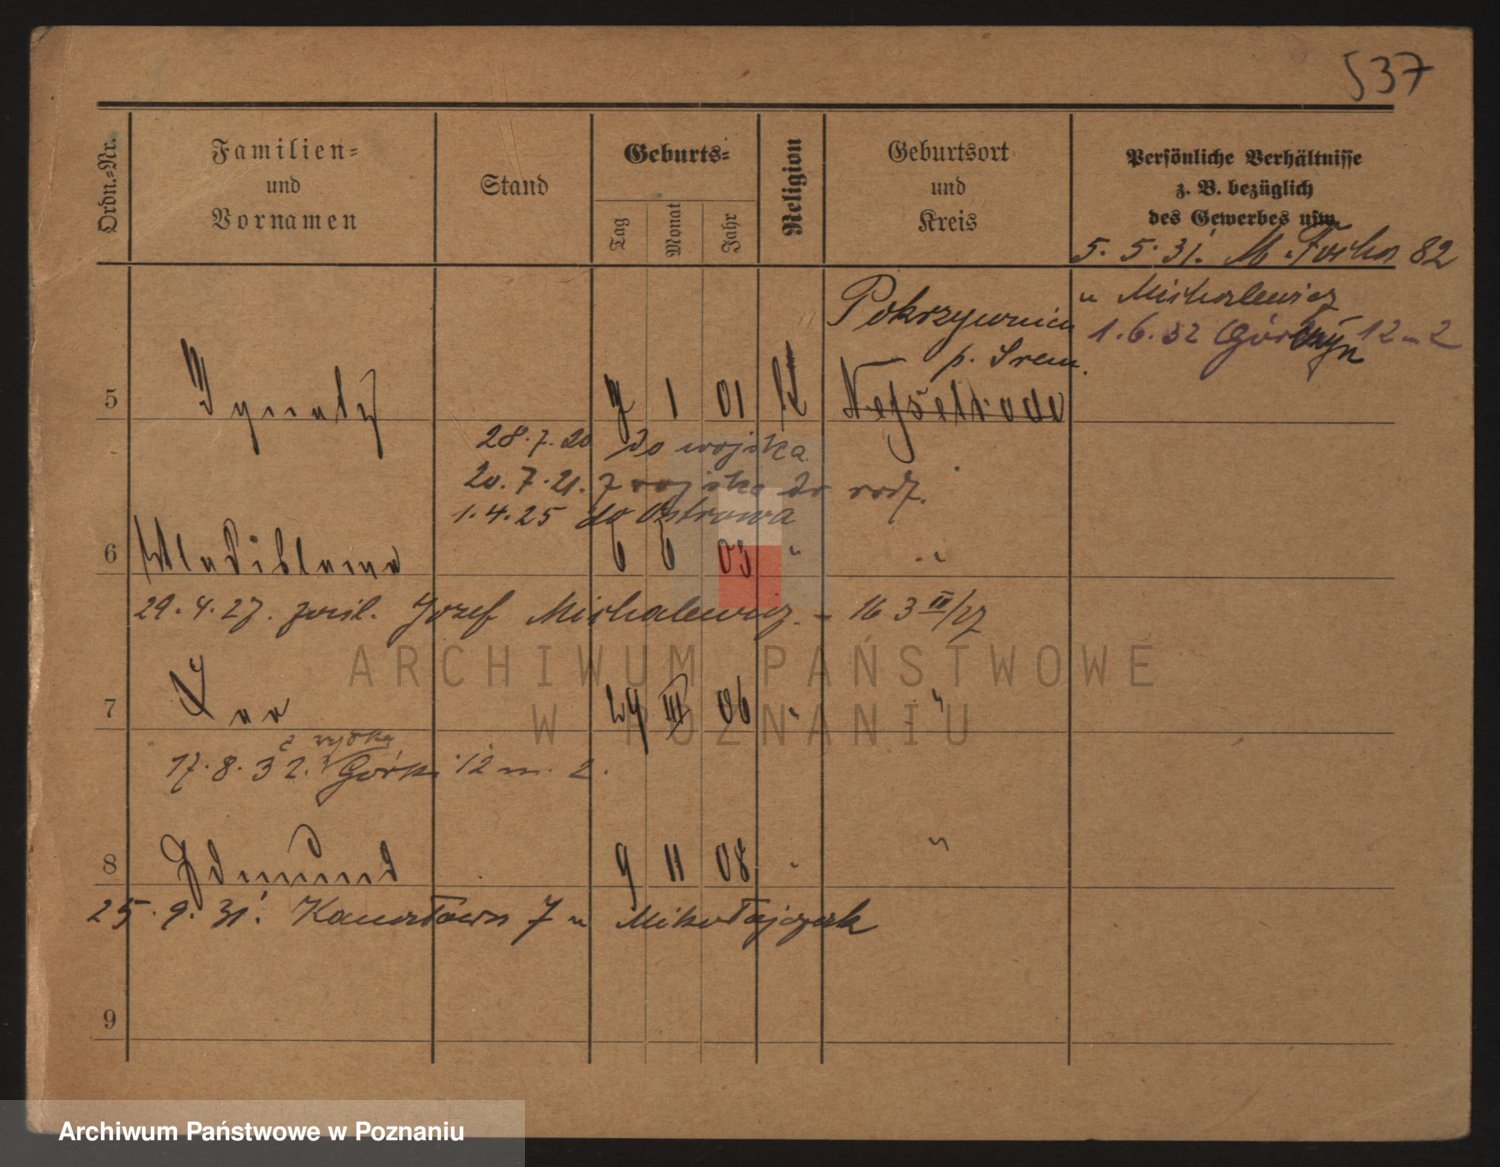 537
Ordn.-Nr.
Familien-
und
Vornamen
Stand
Geburts-
Tag
Monat
Jahr
Religion
Geburtsort
und
Kreis
Persönliche Verhältnisse
z. B. bezüglich
des Gewerbes usw.
5. 5. 31. M. Focha 82
u Michalewicz
1. 6. 32 12 m 2
Pokrzywnica
p. Śrem.
5 Ignatz 9 1 01 K Nesselrode
28. 7. 20 do wojska
20. 7. 21. z wojska do rodz.
1. 4. 25 do Ostrowa
6 Wladislawa 6 6 03 " "
29. 4. 27. Jozef Michalewicz - 16 3 III/27
7 Jan 24 III 06 " "
17. 8. 32. Górki 12 m. 2.
8 Edmund 9 11 08 " "
25. 9. 31. 7 u Mikołajczak
9
ARCHIWUM PAŃSTWOWE
W POZNANIU
Archiwum Państwowe w Poznaniu